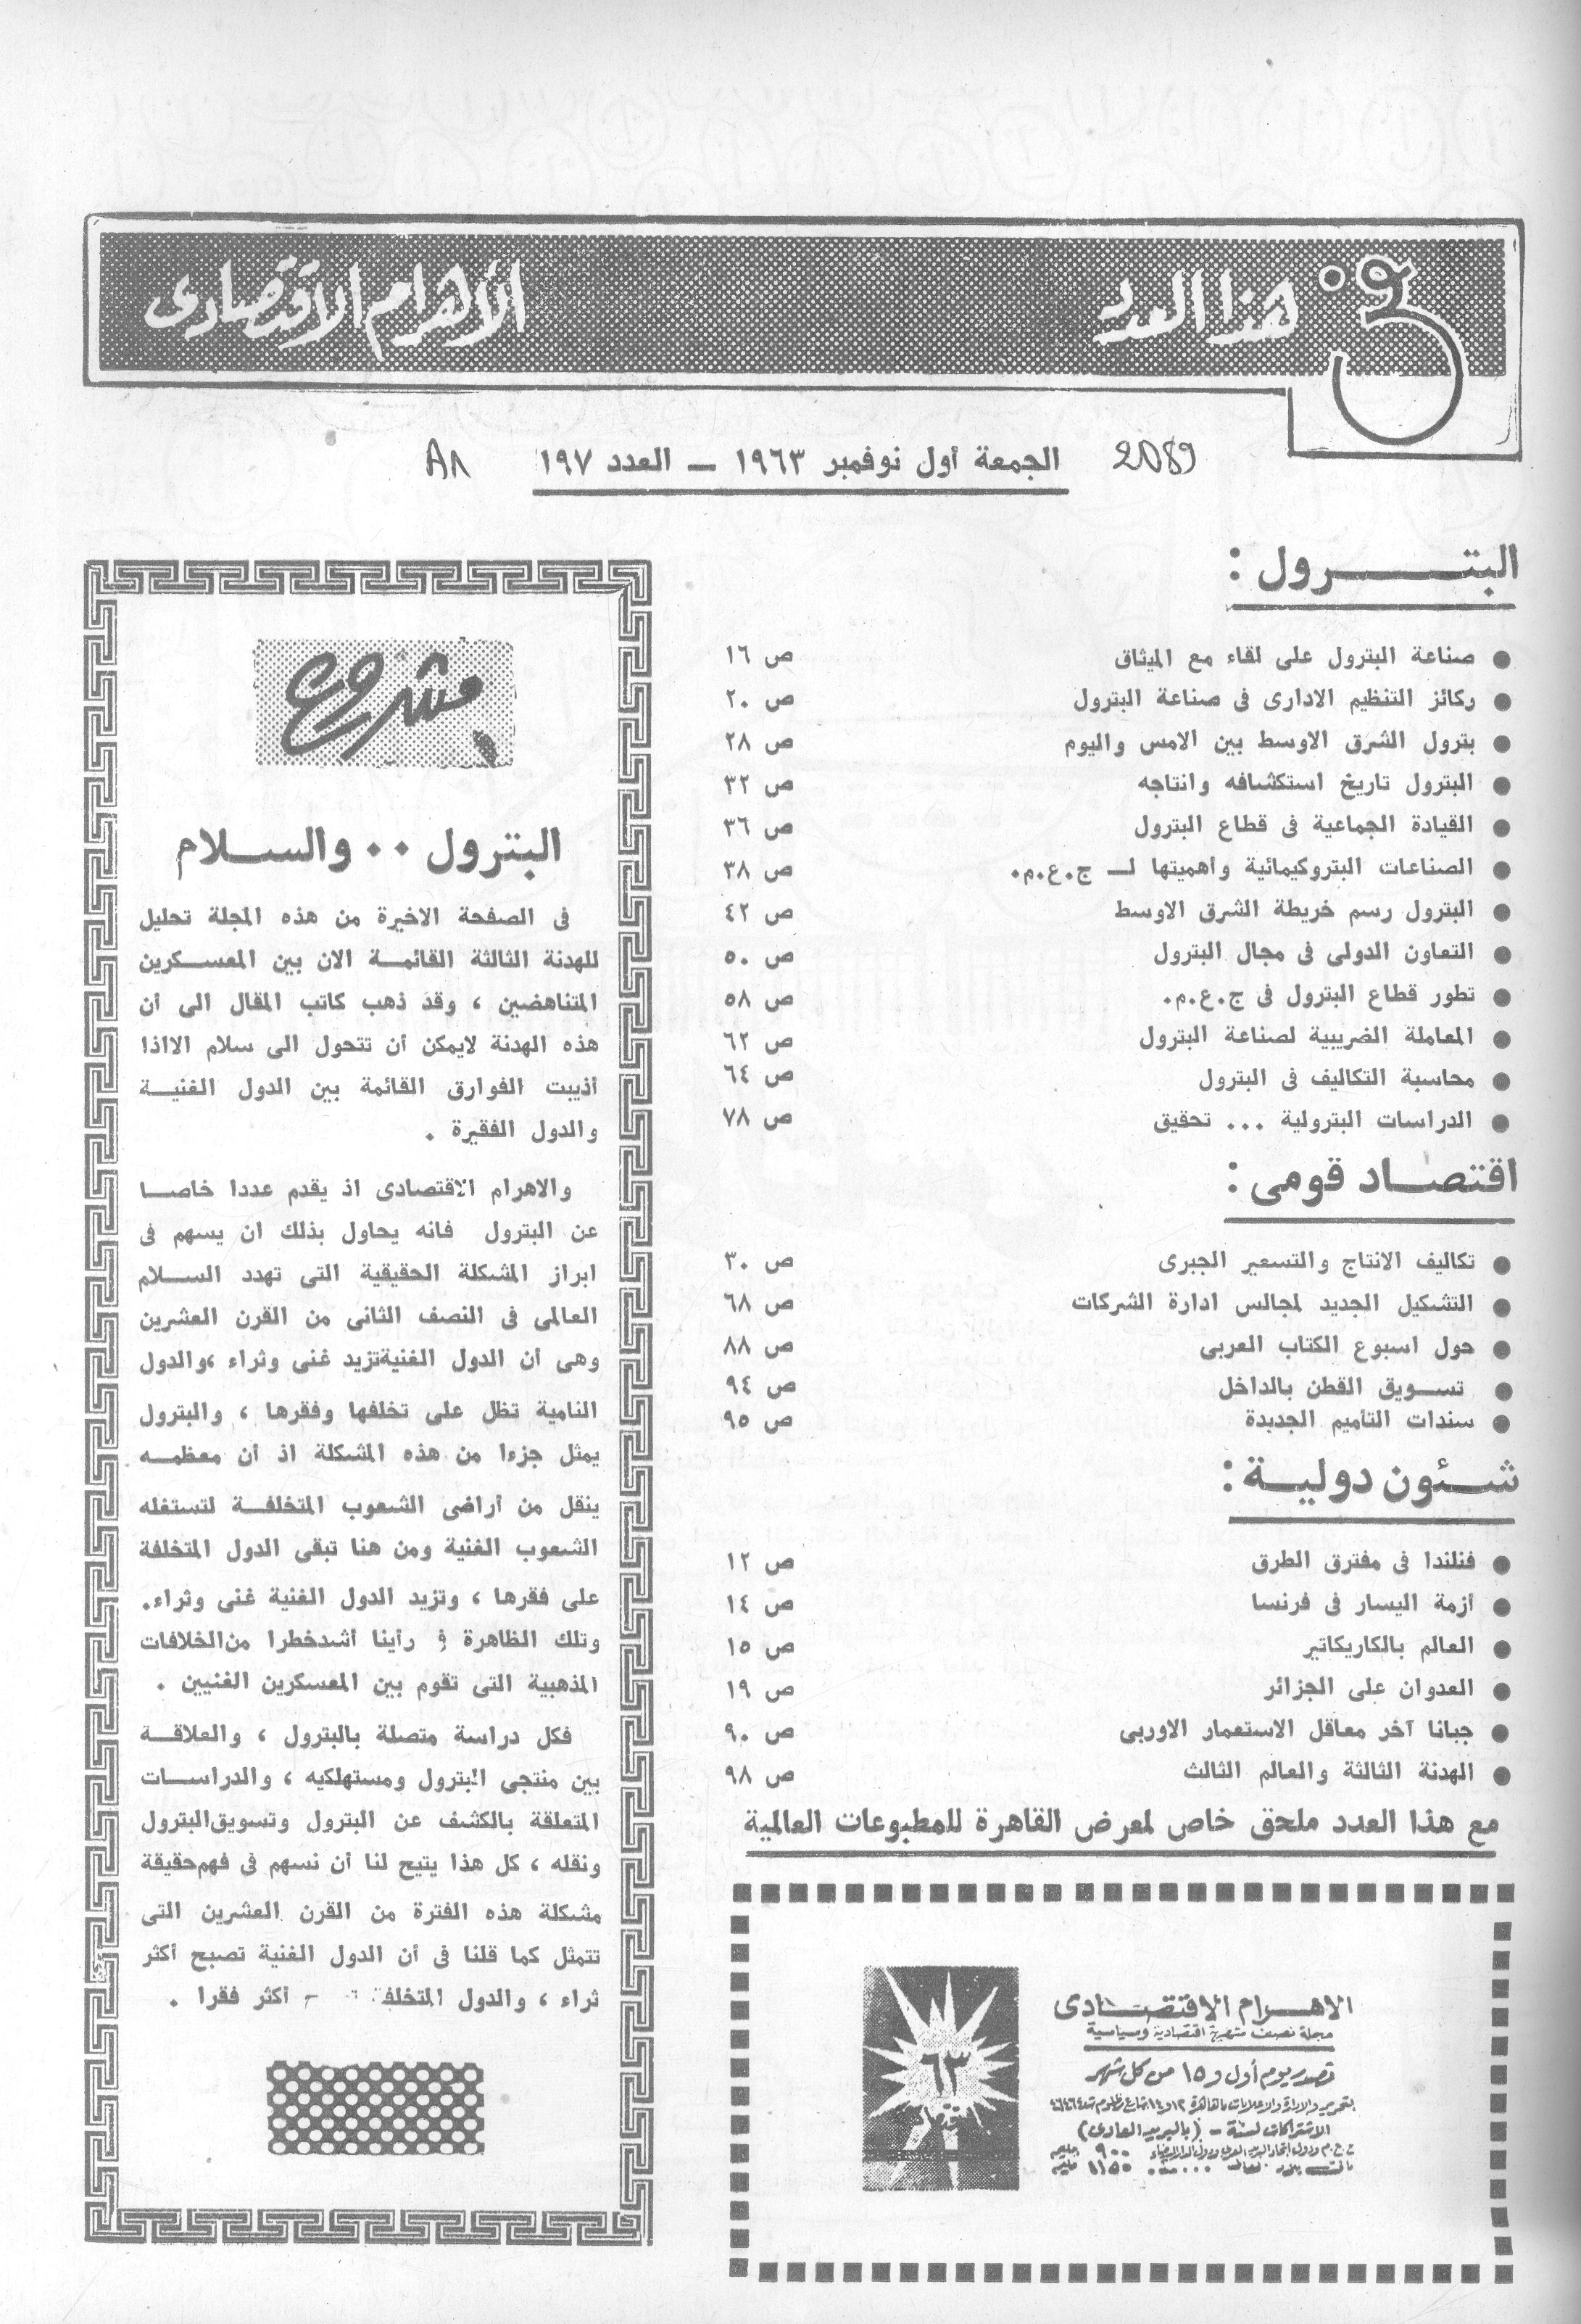 فى هذا العدد
الأهرام الاقتصادى
2089
الجمعة أول نوفمبر ١٩٦٣ — العدد ١٩٧
البتـــرول :
● صناعة البترول على لقاء مع الميثاق ص ١٦
● ركائز التنظيم الادارى فى صناعة البترول ص ٢٠
● بترول الشرق الاوسط بين الامس واليوم ص ٢٨
● البترول تاريخ استكشافه وانتاجه ص ٣٢
● القيادة الجماعية فى قطاع البترول ص ٣٦
● الصناعات البتروكيمائية وأهميتها لـ ج.ع.م. ص ٣٨
● البترول رسم خريطة الشرق الاوسط ص ٤٢
● التعاون الدولى فى مجال البترول ص ٥٠
● تطور قطاع البترول فى ج.ع.م. ص ٥٨
● المعاملة الضريبية لصناعة البترول ص ٦٢
● محاسبة التكاليف فى البترول ص ٦٤
● الدراسات البترولية ... تحقيق ص ٧٨
اقتصـاد قومى :
● تكاليف الانتاج والتسعير الجبرى ص ٣٠
● التشكيل الجديد لمجالس ادارة الشركات ص ٦٨
● حول اسبوع الكتاب العربى ص ٨٨
● تسـويق القطن بالداخل ص ٩٤
● سندات التأميم الجديدة ص ٩٥
شـئون دوليـة :
● فنلندا فى مفترق الطرق ص ١٢
● أزمة اليسار فى فرنسا ص ١٤
● العالم بالكاريكاتير ص ١٥
● العدوان على الجزائر ص ١٩
● جيانا آخر معاقل الاستعمار الاوربى ص ٩٠
● الهدنة الثالثة والعالم الثالث ص ٩٨
مع هذا العدد ملحق خاص لمعرض القاهرة للمطبوعات العالمية
الاهـرام الاقتصـادى
مجلة نصف شهرية اقتصادية وسياسية
تصدر يوم أول و ١٥ من كل شهر
الاشتراكات لسنة - (بالبريد العادى)
٩٠٠ مليم
١١٥٠ مليم
٦٣
مشروع
البترول ٠٠ والسـلام
فى الصفحة الاخيرة من هذه المجلة تحليل
للهدنة الثالثة القائمـة الان بين المعسـكرين
المتناهضين ، وقد ذهب كاتب المقال الى أن
هذه الهدنة لايمكن أن تتحول الى سلام الااذا
أذيبت الفوارق القائمة بين الدول الغنيـة
والدول الفقيرة .
والاهرام الاقتصادى اذ يقدم عددا خاصـا
عن البترول فانه يحاول بذلك ان يسهم فى
ابراز المشكلة الحقيقية التى تهدد السـلام
العالمى فى النصف الثانى من القرن العشرين
وهى أن الدول الغنيةتزيد غنى وثراء ،والدول
النامية تظل على تخلفها وفقرها ، والبترول
يمثل جزءا من هذه المشكلة اذ أن معظمـه
ينقل من أراضى الشعوب المتخلفـة لتستغله
الشعوب الغنية ومن هنا تبقى الدول المتخلفة
على فقرها ، وتزيد الدول الغنية غنى وثراء.
وتلك الظاهرة فى رأينا أشدخطرا من‌الخلافات
المذهبية التى تقوم بين المعسكرين الغنيين .
فكل دراسة متصلة بالبترول ، والعلاقـة
بين منتجى البترول ومستهلكيه ، والدراسـات
المتعلقة بالكشف عن البترول وتسويق‌البترول
ونقله ، كل هذا يتيح لنا أن نسهم فى فهم‌حقيقة
مشكلة هذه الفترة من القرن العشرين التى
تتمثل كما قلنا فى أن الدول الغنية تصبح أكثر
ثراء ، والدول المتخلفة أكثر فقرا .